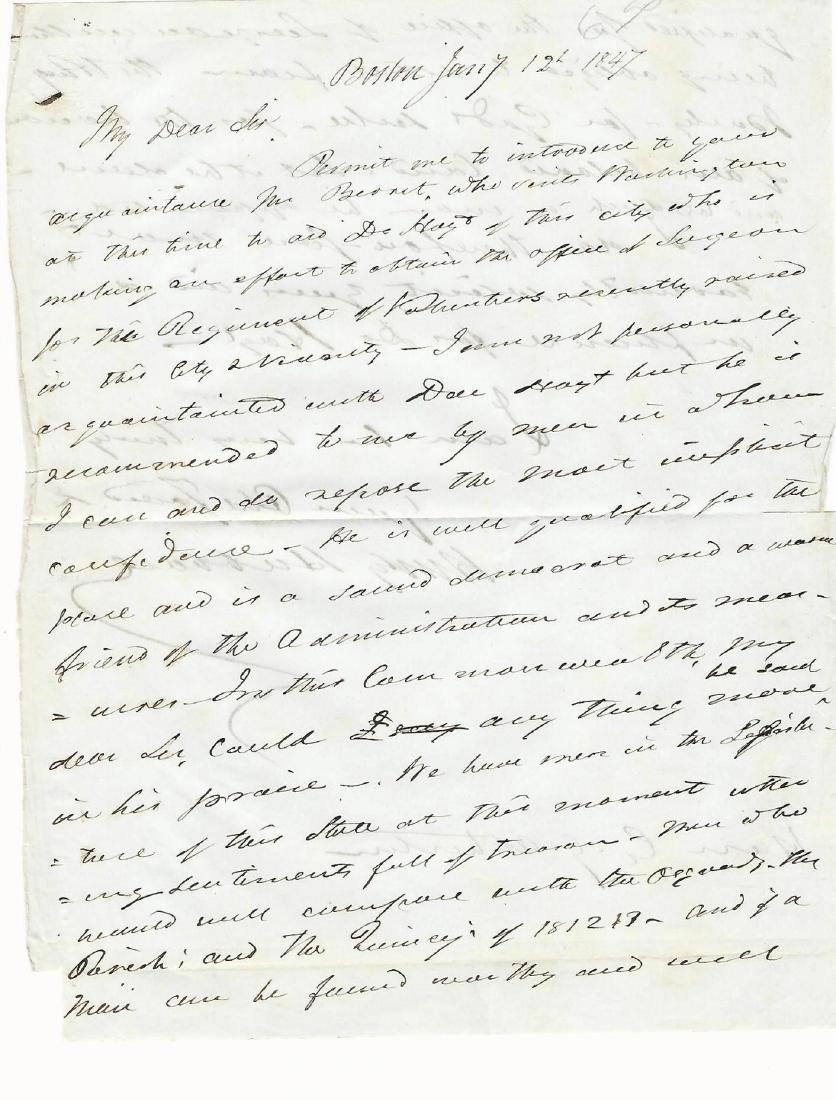 Boston Jany 12th 1847
My Dear Sir.
Permit me to introduce to your
acquaintance Mr who visits Washington
at this time to aid Dr Hoyt of this city who is
making an effort to obtain the office of Surgeon
for the Regiment of Volunteers recently raised
in this City & Vicinity – I am not personally
acquaintainted with Doct Hoyt but he is
recommended to me by men in whom
I can and do repose the most implicit
confidence – He is well qualified for the
place and is a sound democrat and a warm
friend of the Administration and its meas-
=ures – In this Commonwealth, My
dear Sir, could I say any thing more be said
in his praise –. We have men in the Legisla-
=ture of this State at this moment utter
=ing sentiments full of treason – men who
would well compare with the Osgoods, the
Parish's and the Quincy's of 1812 13 – and if a
man can be found worthy and well